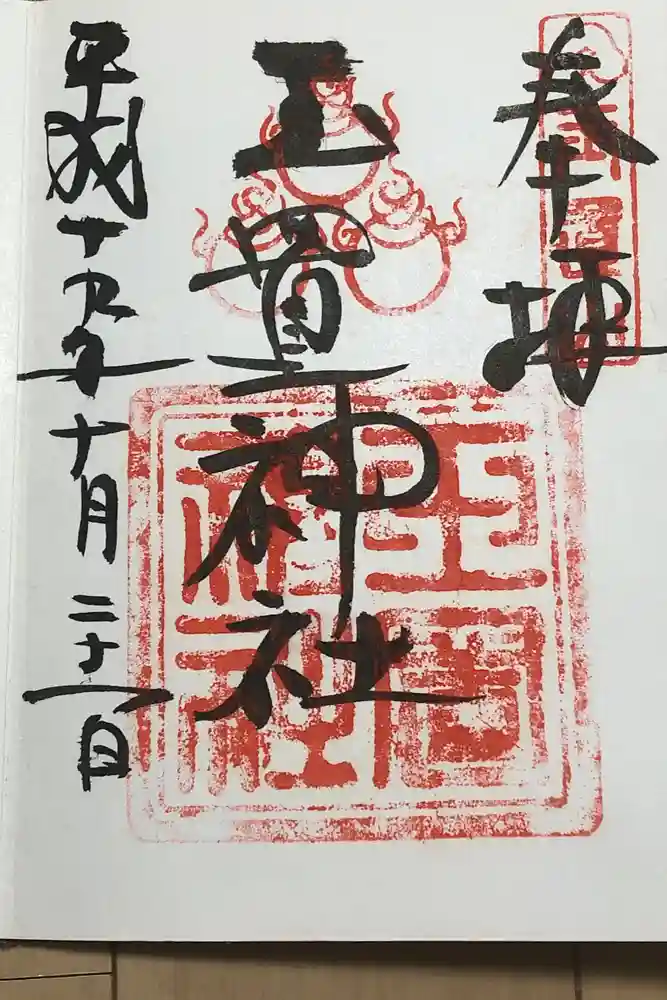 奉拝
玉置神社
平成十九年十月二十一日
玉置
神社